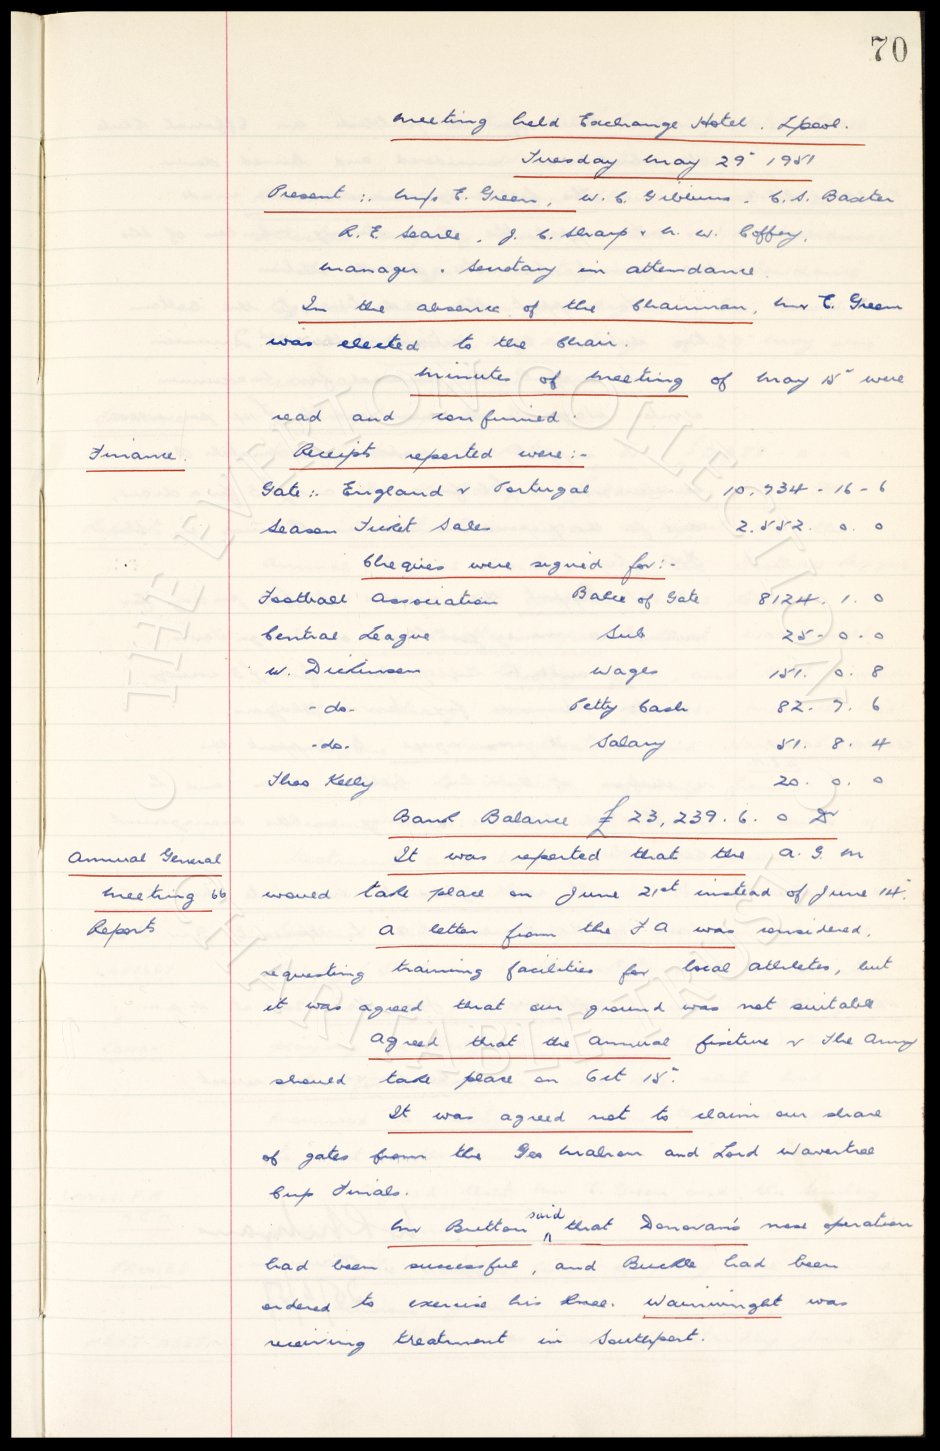 70
Meeting held Exchange Hotel. Lpool.
Tuesday May 29" 1951
Present :. Mr/s E. Green, W. C. Gibbins. C. S. Baxter
R. E. Searle, J. C. Sharp & N. W. Coffey.
Manager & Secretary in attendance.
In the absence of the Chairman, Mr E. Green
was elected to the Chair.
Minutes of Meeting of May 15" were
read and confirmed.
Finance. Receipts reported were:-
Gate :. England v Portugal 10,934 - 16 - 6
Season Ticket Sales 2.552. 0. 0
Cheques were signed for:-
Football Association Balce of Gate 8124. 1. 0
Central League Sub 25 - 0 - 0
W. Dickinson Wages 151. 0. 8
- do- Petty Cash 82. 9. 6
-do. Salary 51. 8. 4
Theo Kelly 20. 0. 0
Bank Balance £23,239. 6. 0 Dr
Annual General It was reported that the A. G. M
Meeting 66 would take place on June 21st instead of June 14".
Reports A letter from the F A was considered,
requesting training facilities for local athletes, but
it was agreed that our ground was not suitable
Agreed that the Annual fixture v The Army
should take place on Oct 15".
It was agreed not to claim our share
of gates from the Geo Mahon and Lord Wavertree
Cup Finals.
Mr Britton said that Donovan's nose operation
had been successful, and Buckle had been
ordered to exercise his knee. Wainwright was
receiving treatment in Southport.
THE EVERTON COLLECTION
CHARITABLE TRUST